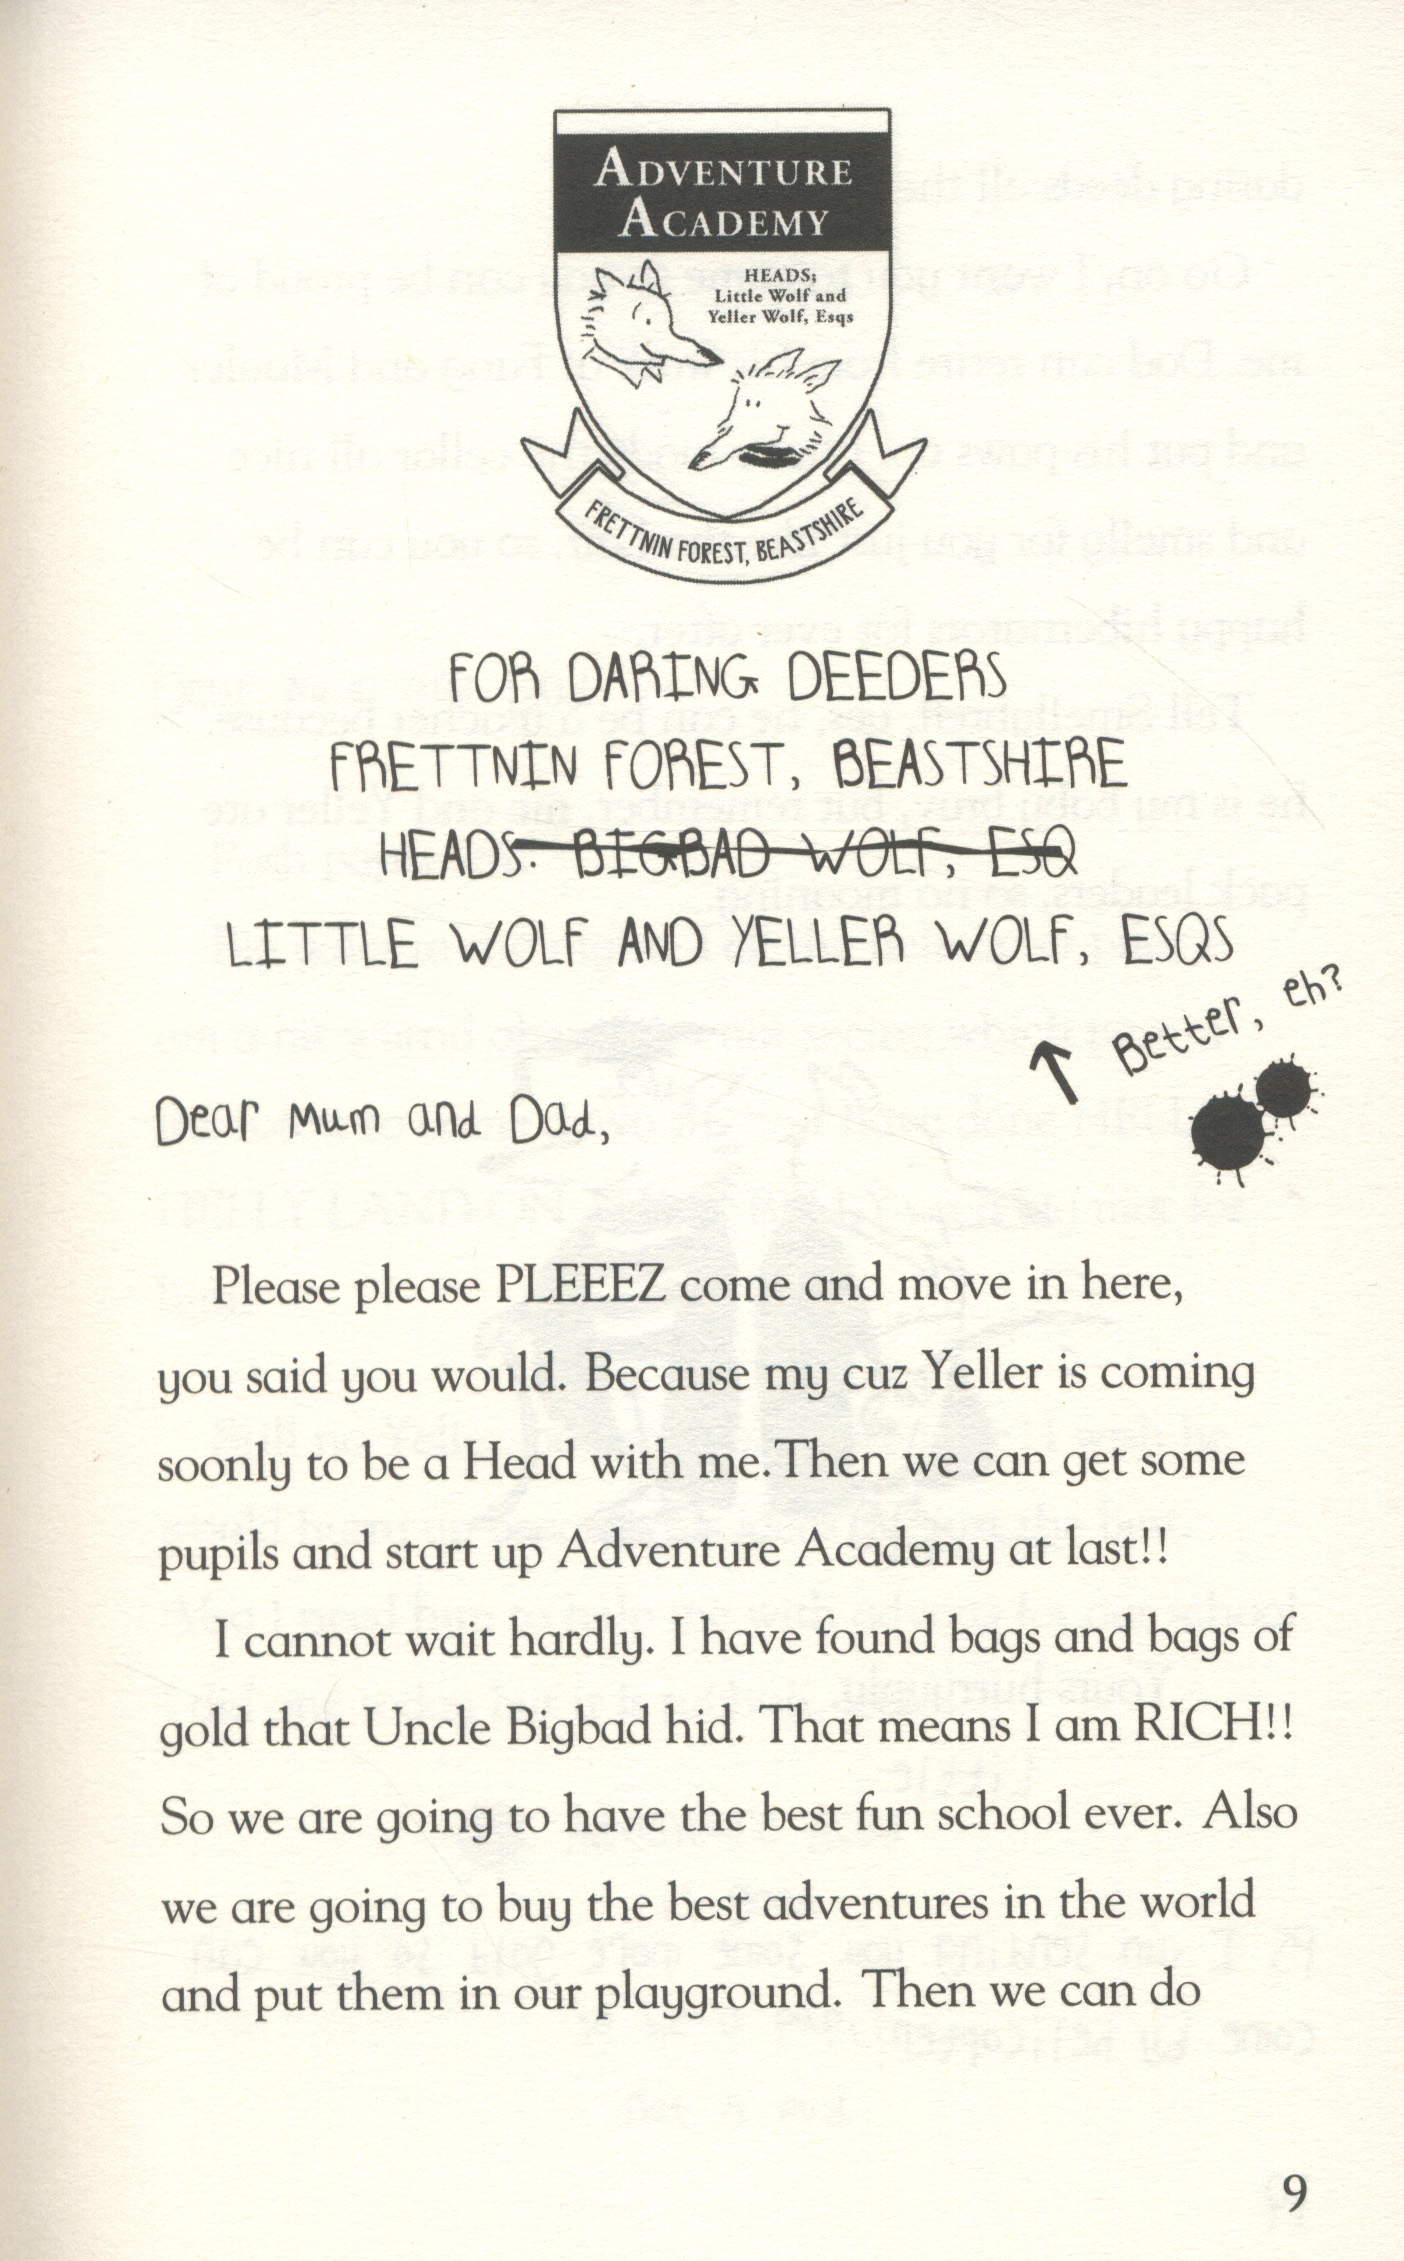 ADVENTURE
ACADEMY
HEADS;
Little Wolf and
Yeller Wolf, Esqs
FRETTNIN FOREST, BEASTSHIRE
FOR DARING DEEDERS
FRETTNIN FOREST, BEASTSHIRE
HEADS: BIGBAD WOLF, ESQ
LITTLE WOLF AND YELLER WOLF, ESQS
Better, eh?
Dear Mum and Dad,
Please please PLEEEZ come and move in here,
you said you would. Because my cuz Yeller is coming
soonly to be a Head with me.Then we can get some
pupils and start up Adventure Academy at last!!
I cannot wait hardly. I have found bags and bags of
gold that Uncle Bigbad hid. That means I am RICH!!
So we are going to have the best fun school ever. Also
we are going to buy the best adventures in the world
and put them in our playground. Then we can do
9